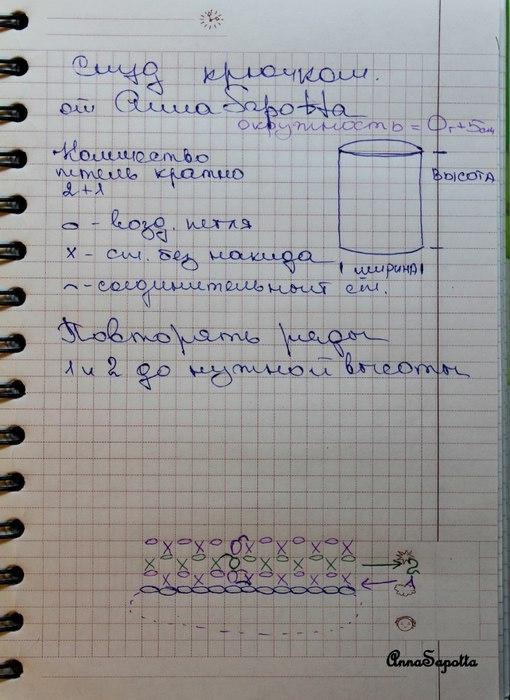 Снуд крючком.
от AnnaSapotta
окружность = Ог+5см
Количество
петель кратно
2+1
высота
ширина
о - возд. петля
х - ст. без накида
⌢ - соединительный ст.
Повторять ряды
1 и 2 до нужной высоты
2
1
AnnaSapotta